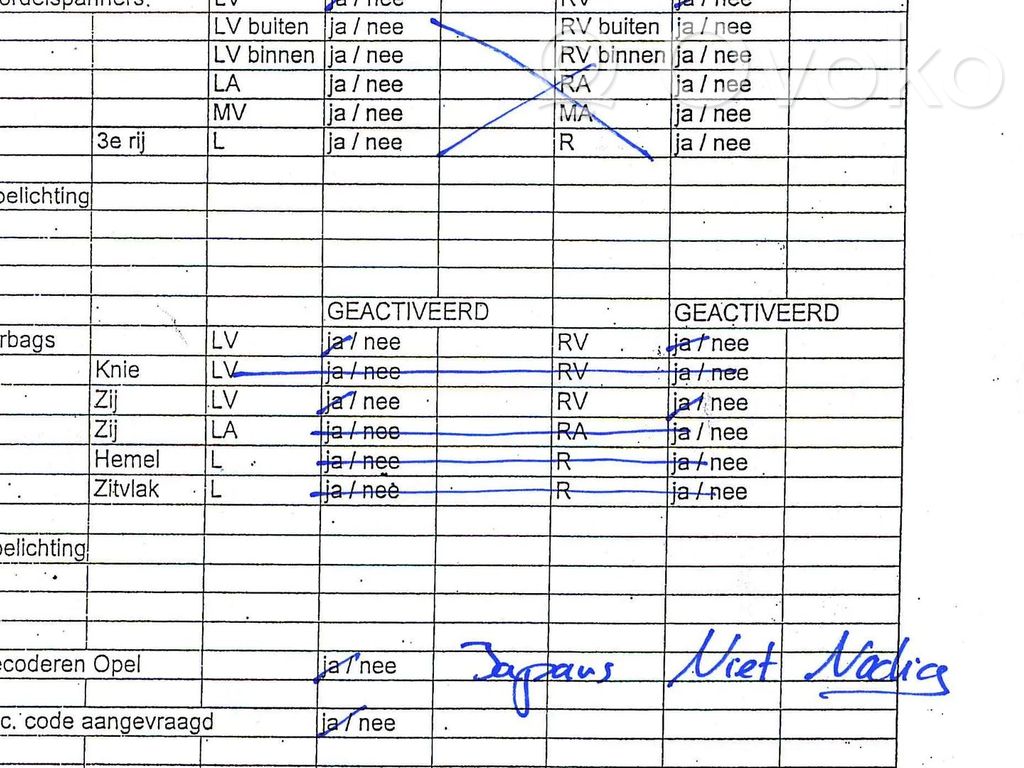 ordelspanners. LV ja / nee RV ja / nee
LV buiten ja / nee RV buiten ja / nee
LV binnen ja / nee RV binnen ja / nee
LA ja / nee RA ja / nee
MV ja / nee MA ja / nee
3e rij L ja / nee R ja / nee
oelichting
GEACTIVEERD GEACTIVEERD
rbags LV ja / nee RV ja / nee
Knie LV ja / nee RV ja / nee
Zij LV ja / nee RV ja / nee
Zij LA ja / nee RA ja / nee
Hemel L ja / nee R ja / nee
Zitvlak L ja / nee R ja / nee
oelichting
ecoderen Opel ja / nee Japans Niet Nodig
c. code aangevraagd ja / nee
OVOKO